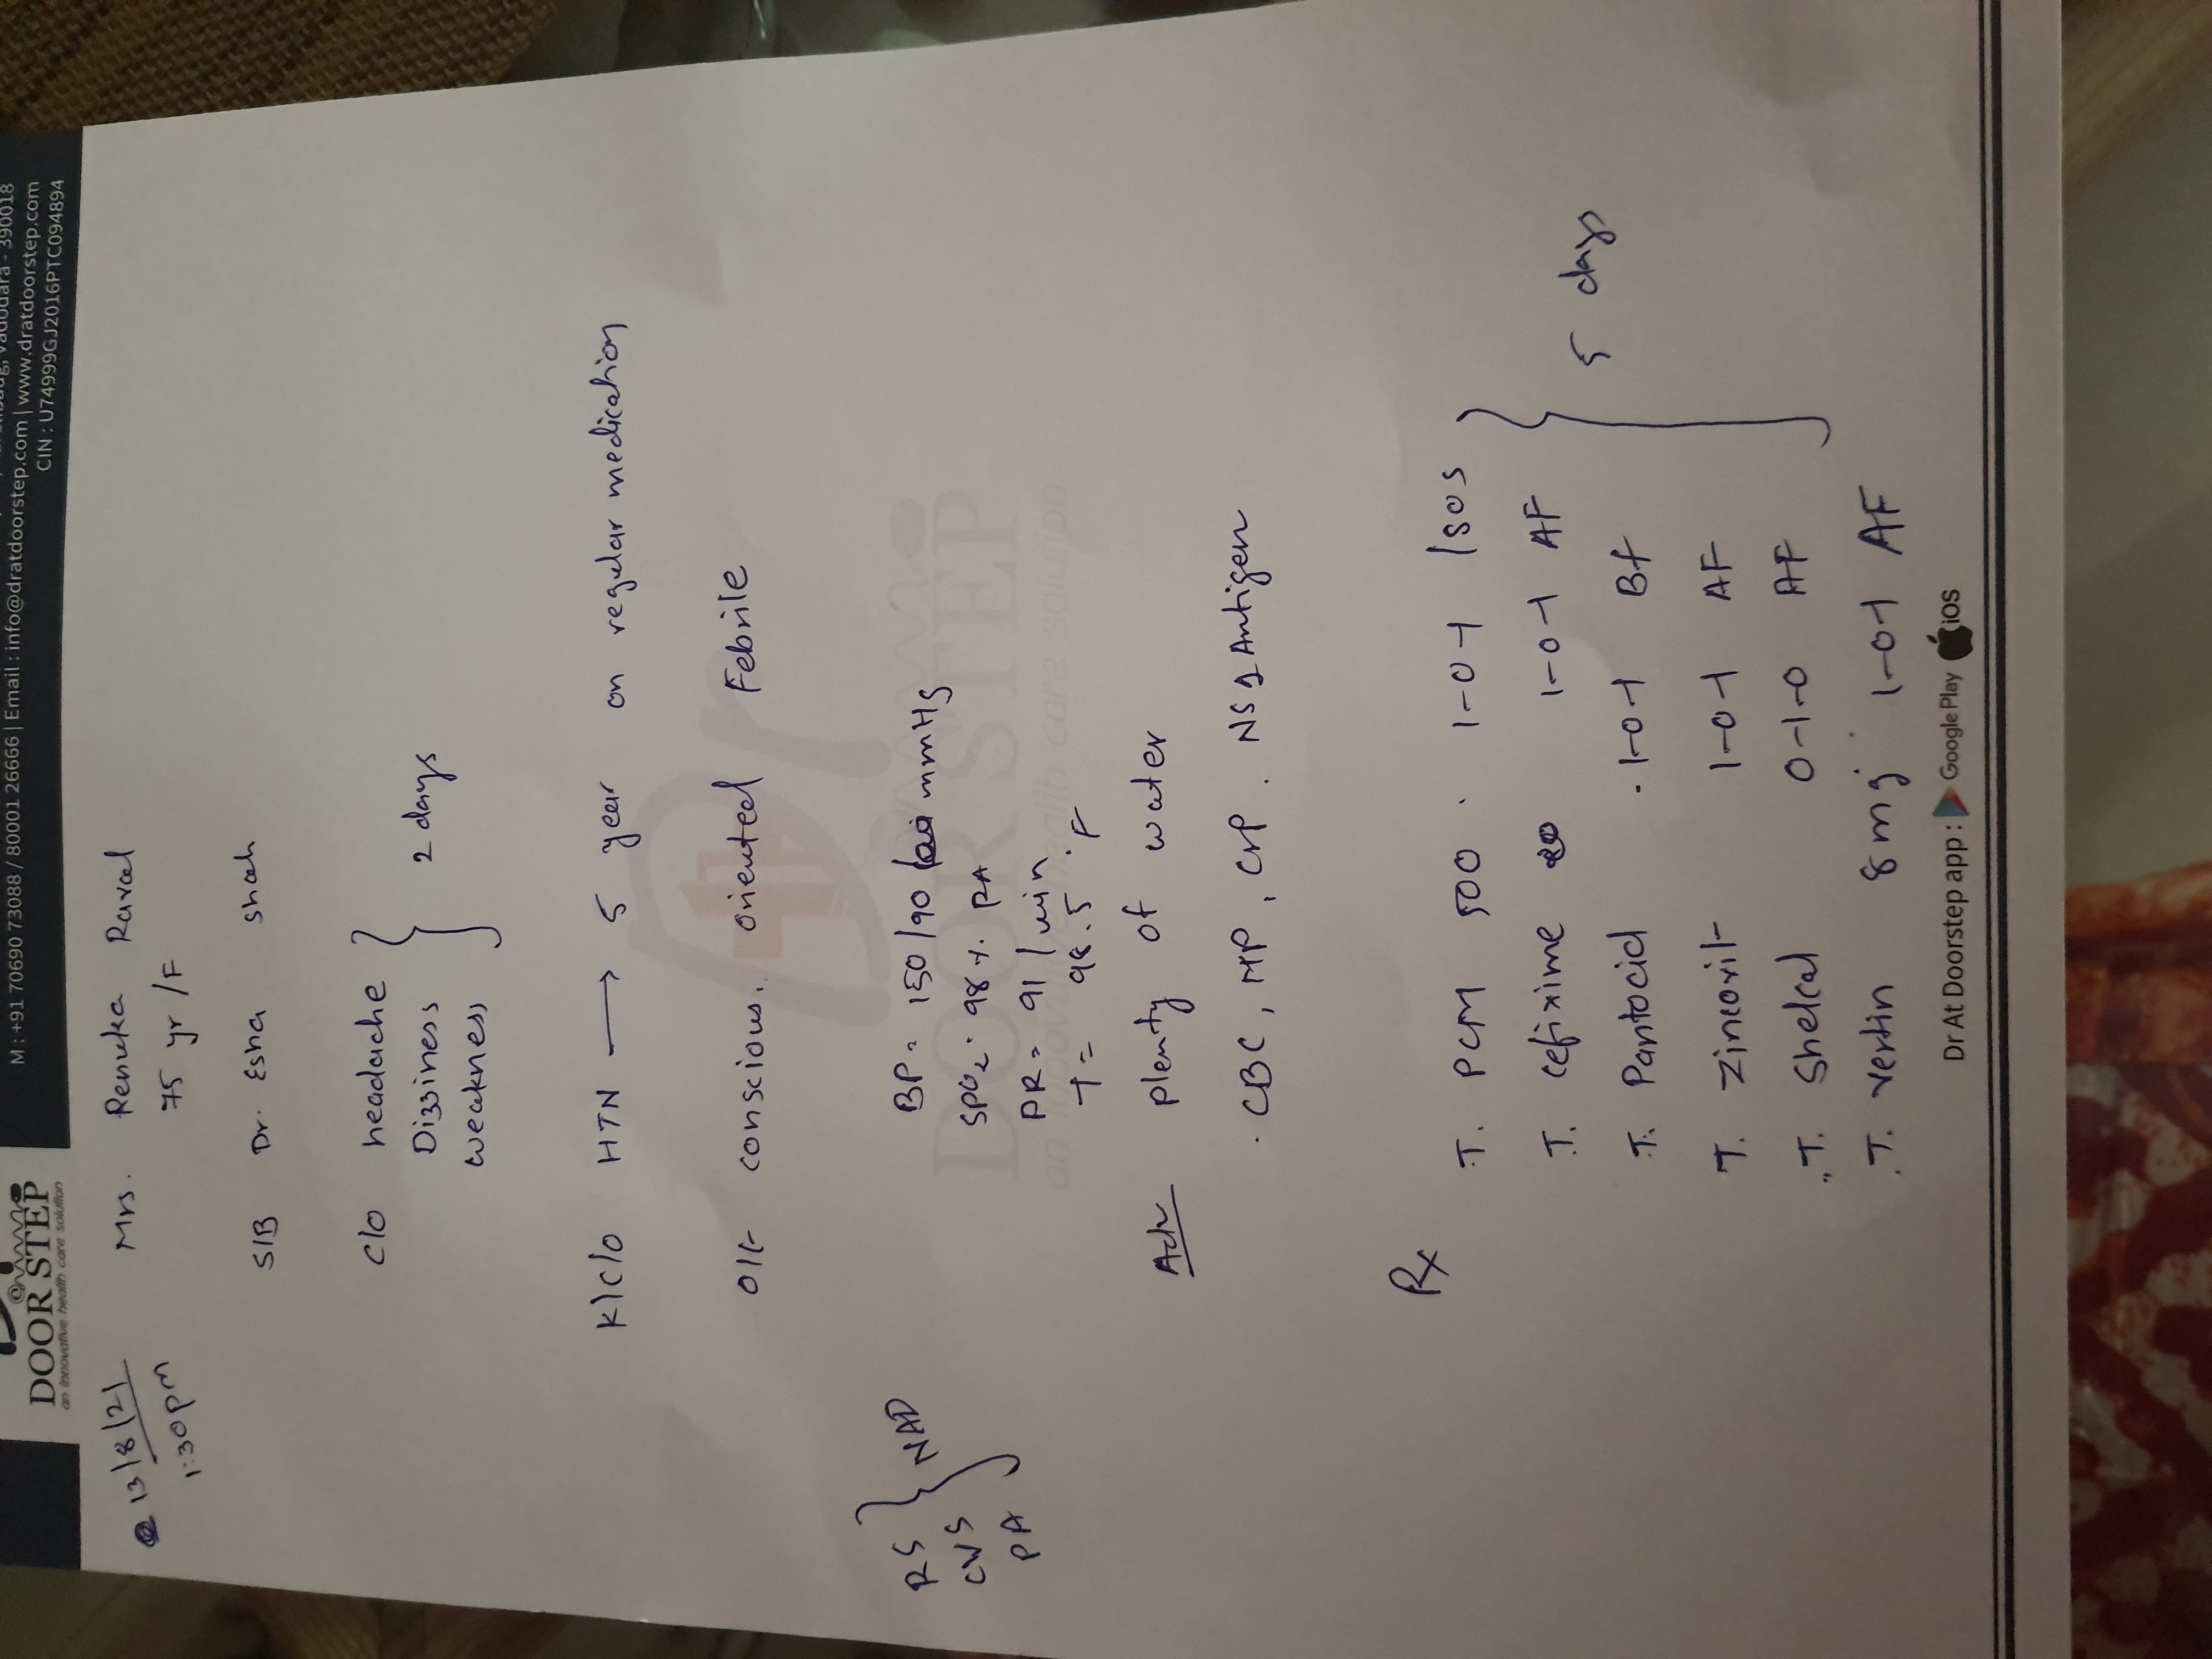 DOOR STEP
an innovative health care solution
Vadodara - 390018
M : +91 70690 73088 / 80001 26666 | Email : info@dratdoorstep.com | www.dratdoorstep.com
CIN : U74999GJ2016PTC094894
13/8/21
1:30pm
Mrs. Renuka Raval
75 yr /F
S/B Dr. Esha Shah
c/o headache
Dizziness
weakness
2 days
K/c/o HTN → 5 year on regular medication
O/E conscious. oriented Febrile
Dr
DOOR STEP
an innovative health care solution
RS
CVS
PA
NAD
BP = 150/90 mmHg
SPO2 98 % RA
PR = 91 / min
T = 98.5 °F
Adv plenty of water
. CBC, MP, CrP. NS1 Antigen
Rx
T. PCM 500 . 1-0-1 /SOS
T. Cefixime 1-0-1 AF
T. Pantocid . 1-0-1 Bf
T. Zincovit 1-0-1 AF
T. Shelcal 0-1-0 AF
5 days
T. Vertin 8mg 1-0-1 AF
Dr At Doorstep app : Google Play iOS